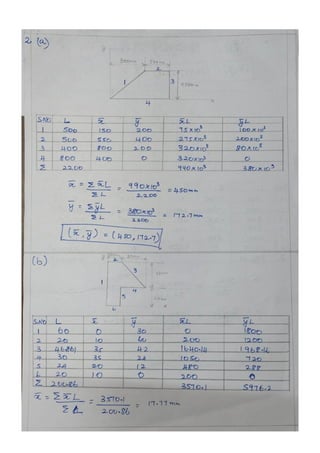 2 (a)
1 2 3
4
S.NO L x̄ ȳ x̄L ȳL
1 500 150 200 75×10³ 100×10³
2 500 550 400 275×10³ 200×10³
3 400 800 200 320×10³ 80×10³
4 800 400 0 320×10³ 0
Σ 2200 990×10³ 380×10³
x̄ = Σx̄L / ΣL = 990×10³ / 2200 = 450mm
ȳ = ΣȳL / ΣL = 380×10³ / 2200 = 172.7mm
(x̄, ȳ) = (450, 172.7)
(b)
2
1 3
5 4
6
S.NO L x̄ ȳ x̄L ȳL
1 60 0 30 0 1800
2 20 10 60 200 1200
3 46.861 35 42 1640.14 1968.16
4 30 35 24 1050 720
5 24 20 12 480 288
6 20 10 0 200 0
Σ 200.86 3570.1 5976.2
x̄ = Σx̄L / ΣL = 3570.1 / 200.86 = 17.77mm